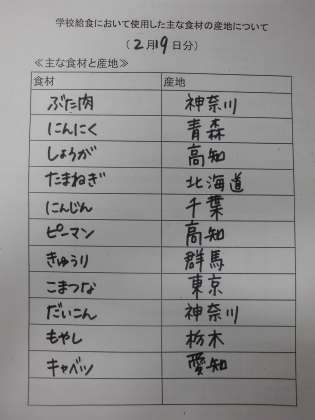 学校給食において使用した主な食材の産地について
（2月19日分）
≪主な食材と産地≫
食材 産地
ぶた肉 神奈川
にんにく 青森
しょうが 高知
たまねぎ 北海道
にんじん 千葉
ピーマン 高知
きゅうり 群馬
こまつな 東京
だいこん 神奈川
もやし 栃木
キャベツ 愛知